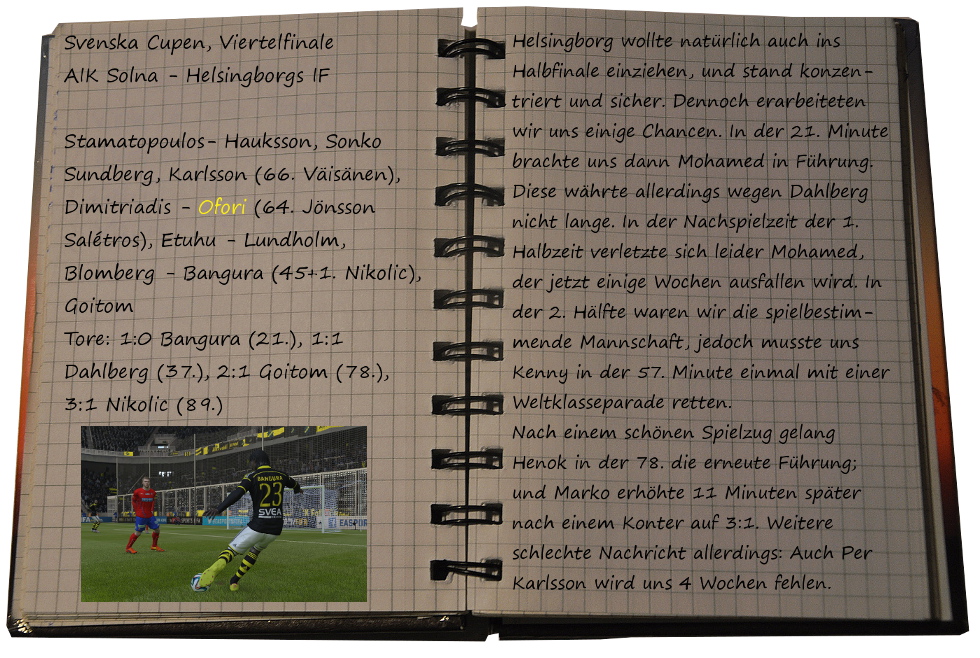 Svenska Cupen, Viertelfinale
AIK Solna - Helsingborgs IF
Stamatopoulos- Hauksson, Sonko
Sundberg, Karlsson (66. Väisänen),
Dimitriadis - Ofori (64. Jönsson
Salétros), Etuhu - Lundholm,
Blomberg - Bangura (45+1. Nikolic),
Goitom
Tore: 1:0 Bangura (21.), 1:1
Dahlberg (37.), 2:1 Goitom (78.),
3:1 Nikolic (89.)
BANGURA
23
SVEA
EASPORTS
Helsingborg wollte natürlich auch ins
Halbfinale einziehen, und stand konzen-
triert und sicher. Dennoch erarbeiteten
wir uns einige Chancen. In der 21. Minute
brachte uns dann Mohamed in Führung.
Diese währte allerdings wegen Dahlberg
nicht lange. In der Nachspielzeit der 1.
Halbzeit verletzte sich leider Mohamed,
der jetzt einige Wochen ausfallen wird. In
der 2. Hälfte waren wir die spielbestim-
mende Mannschaft, jedoch musste uns
Kenny in der 57. Minute einmal mit einer
Weltklasseparade retten.
Nach einem schönen Spielzug gelang
Henok in der 78. die erneute Führung;
und Marko erhöhte 11 Minuten später
nach einem Konter auf 3:1. Weitere
schlechte Nachricht allerdings: Auch Per
Karlsson wird uns 4 Wochen fehlen.